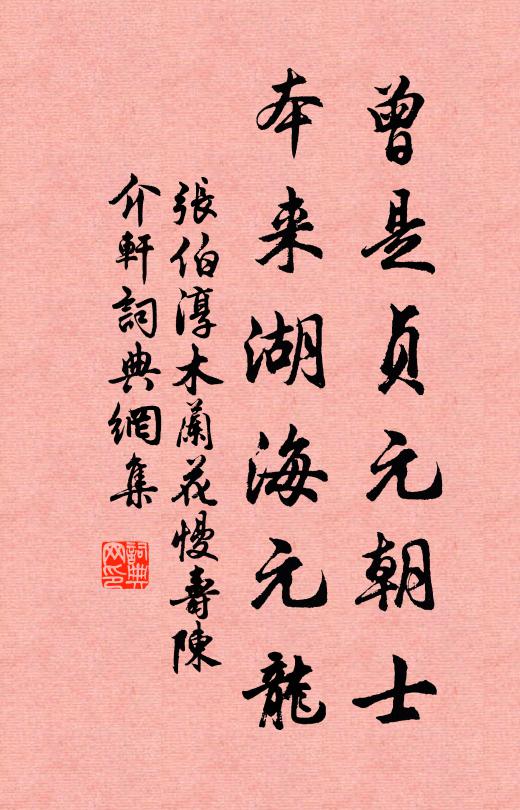 曾是贞元朝士
本来湖海元龍
張伯淳木蘭花慢壽陳
介軒詞典網集
詞典网印